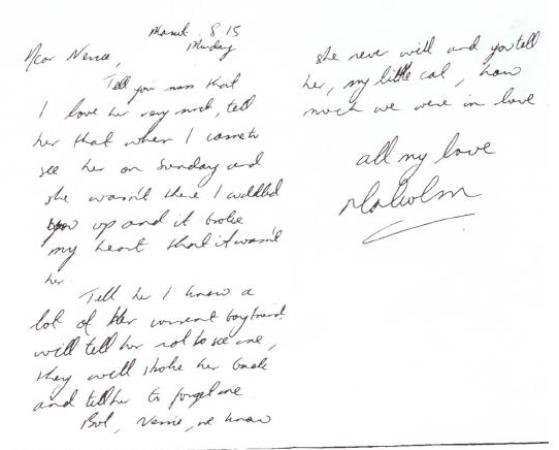 8 15
Monday
Dear
Tell your mum that
I love her very much, tell
her that when I came to
see her on Sunday and
she wasn't there I cuddled
you up and it broke
my heart that it wasn't
her.
Tell her I know a
lot of her current boyfriend
will tell her not to see me,
they will stroke her back
and tell her to forget me.
But, we know
she never will and you tell
her, my little cat, how
much we were in love.
all my love
Malcolm